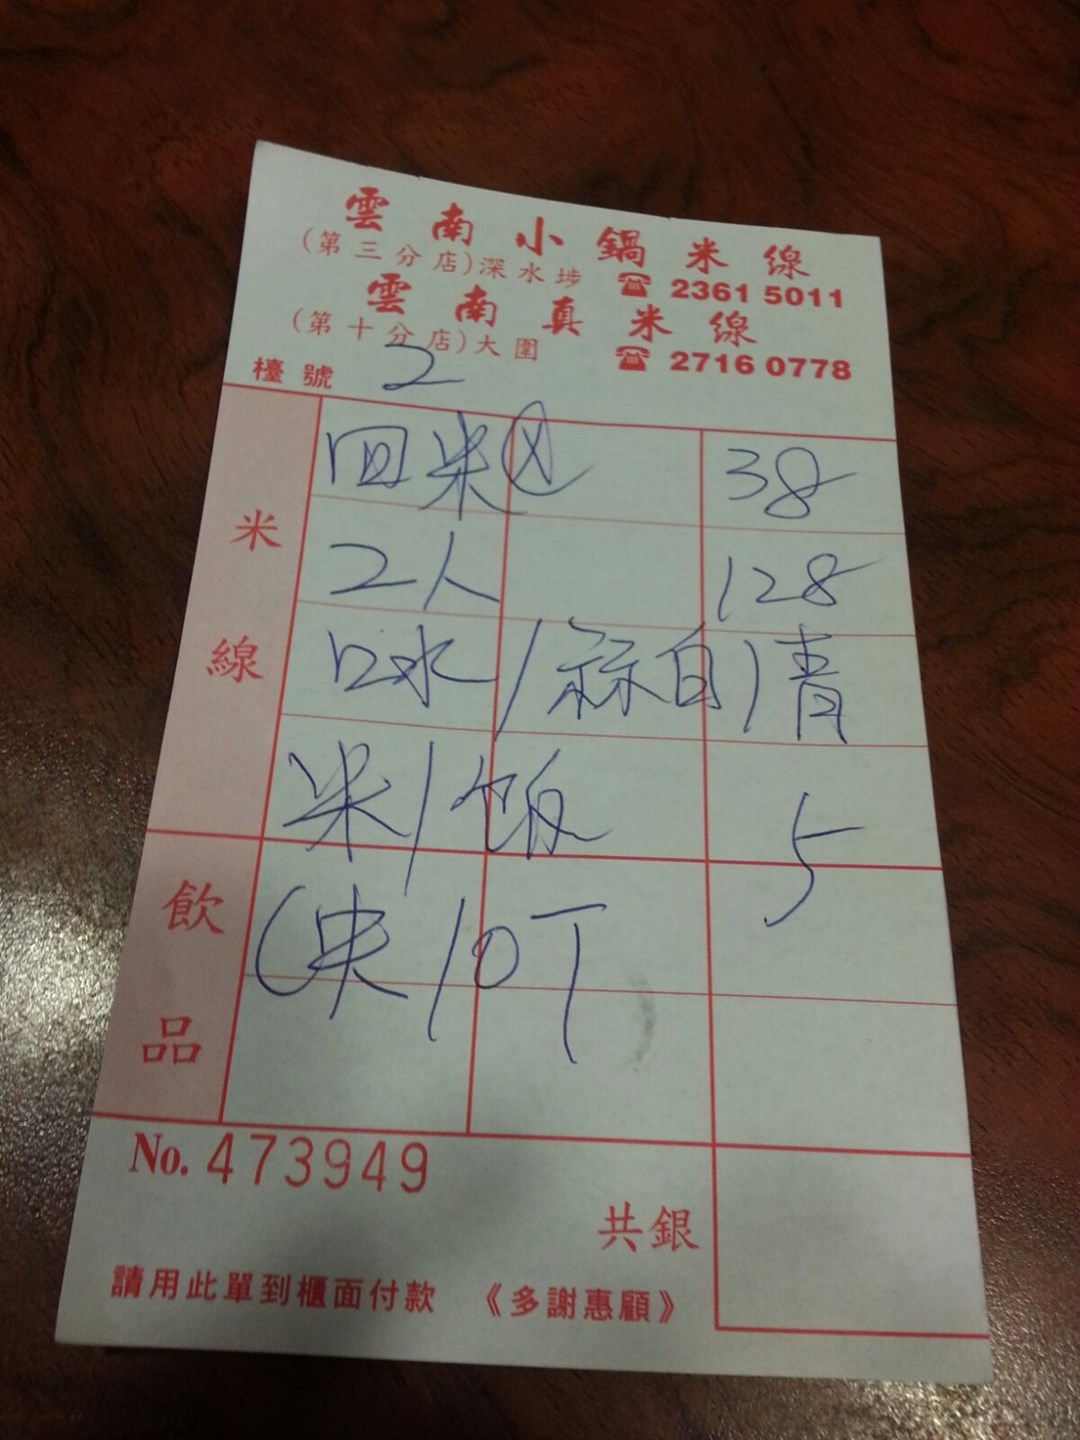 雲南小鍋米線
(第三分店)深水埗 ☎ 2361 5011
雲南真米線
(第十分店)大圍 ☎ 2716 0778
檯號 2
米線
回米 38
2人 128
口水/蒜白/青
米/飯 5
/OT
飲品
No. 473949
共銀
請用此單到櫃面付款 《多謝惠顧》